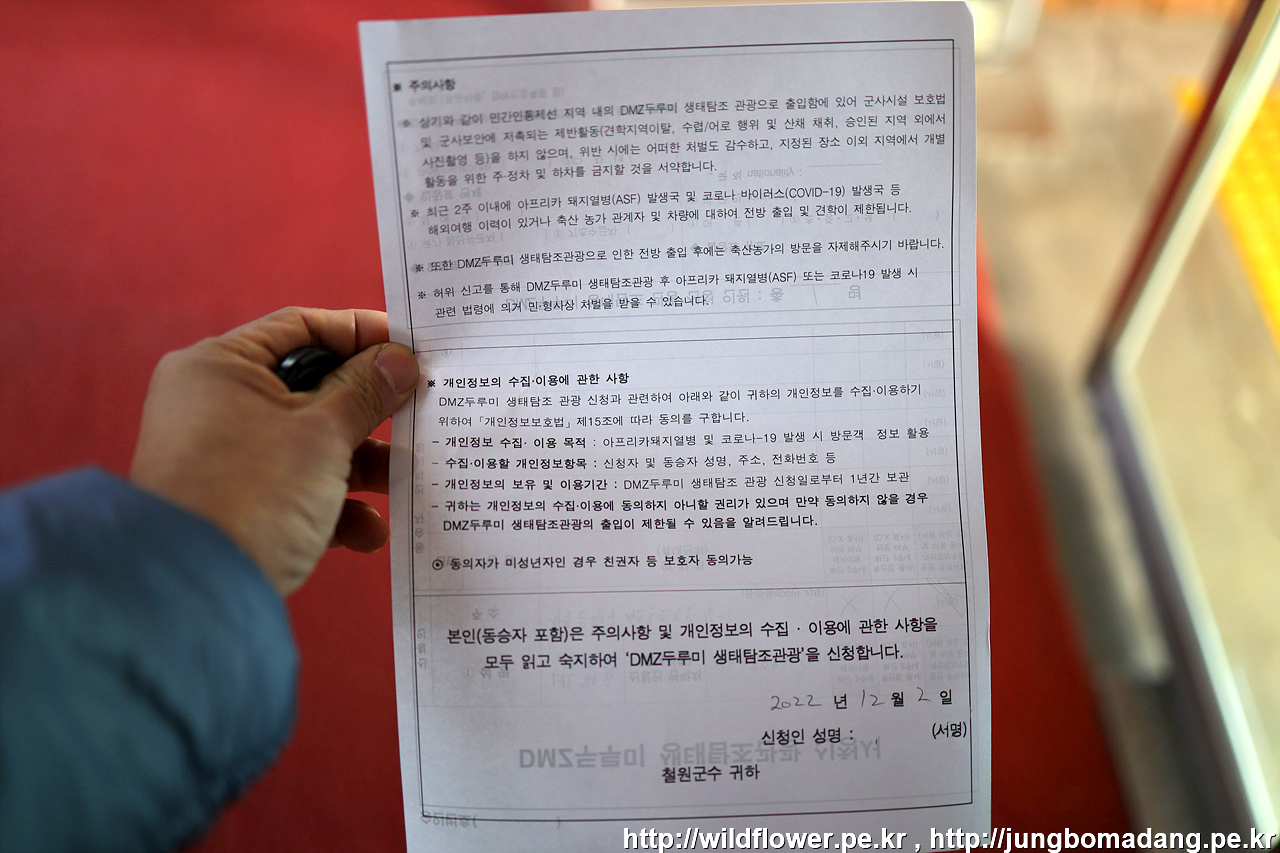 ※ 주의사항
※ 상기와 같이 민간인통제선 지역 내의 DMZ두루미 생태탐조 관광으로 출입함에 있어 군사시설 보호법
및 군사보안에 저촉되는 제반활동(견학지역이탈, 수렵/어로 행위 및 산채 채취, 승인된 지역 외에서
사진촬영 등)을 하지 않으며, 위반 시에는 어떠한 처벌도 감수하고, 지정된 장소 이외 지역에서 개별
활동을 위한 주·정차 및 하차를 금지할 것을 서약합니다.
※ 최근 2주 이내에 아프리카 돼지열병(ASF) 발생국 및 코로나 바이러스(COVID-19) 발생국 등
해외여행 이력이 있거나 축산 농가 관계자 및 차량에 대하여 전방 출입 및 견학이 제한됩니다.
※ 또한 DMZ두루미 생태탐조관광으로 인한 전방 출입 후에는 축산농가의 방문을 자제해주시기 바랍니다.
※ 허위 신고를 통해 DMZ두루미 생태탐조관광 후 아프리카 돼지열병(ASF) 또는 코로나19 발생 시
관련 법령에 의거 민·형사상 처벌을 받을 수 있습니다.
※ 개인정보의 수집·이용에 관한 사항
DMZ두루미 생태탐조 관광 신청과 관련하여 아래와 같이 귀하의 개인정보를 수집·이용하기
위하여「개인정보보호법」제15조에 따라 동의를 구합니다.
- 개인정보 수집· 이용 목적 : 아프리카돼지열병 및 코로나-19 발생 시 방문객 정보 활용
- 수집·이용할 개인정보항목 : 신청자 및 동승자 성명, 주소, 전화번호 등
- 개인정보의 보유 및 이용기간 : DMZ두루미 생태탐조 관광 신청일로부터 1년간 보관
- 귀하는 개인정보의 수집·이용에 동의하지 아니할 권리가 있으며 만약 동의하지 않을 경우
DMZ두루미 생태탐조관광의 출입이 제한될 수 있음을 알려드립니다.
⊙ 동의자가 미성년자인 경우 친권자 등 보호자 동의가능
본인(동승자 포함)은 주의사항 및 개인정보의 수집 · 이용에 관한 사항을
모두 읽고 숙지하여 'DMZ두루미 생태탐조관광'을 신청합니다.
2022 년 12 월 2 일
신청인 성명 : (서명)
철원군수 귀하
http://wildflower.pe.kr , http://jungbomadang.pe.kr